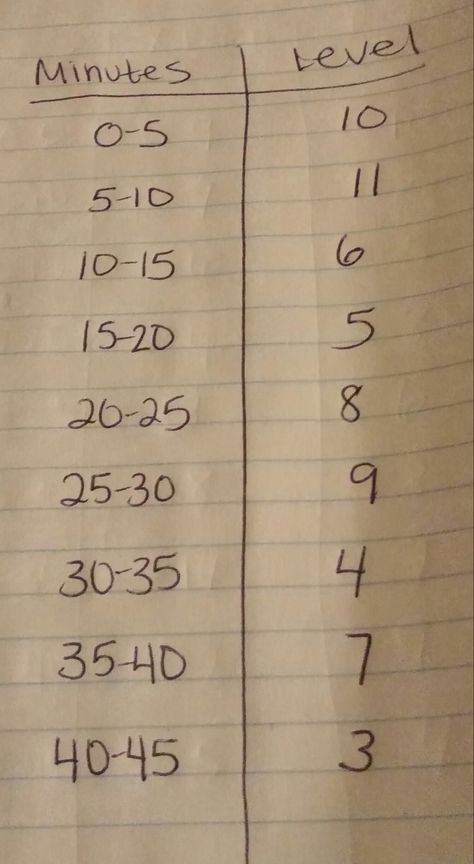 Minutes Level
0-5 10
5-10 11
10-15 6
15-20 5
20-25 8
25-30 9
30-35 4
35-40 7
40-45 3